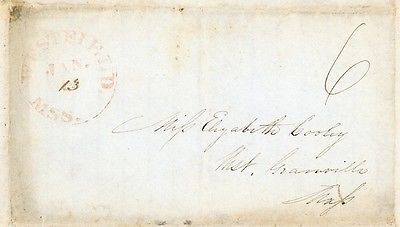 WESTFIELD
JAN.
13
MSS.
6
Miss Elizabeth Cooley
West. Granville
Mass